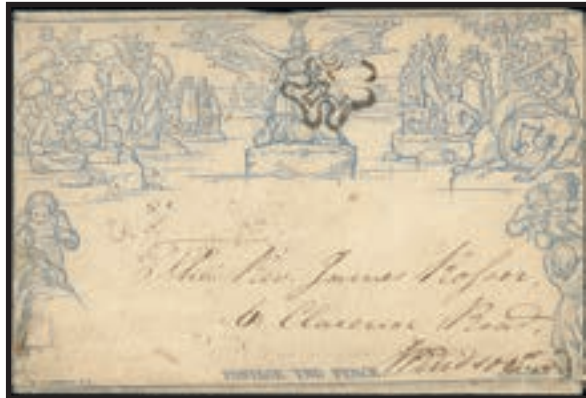 The Rev. James
6 Clarence Road,
Windsor
POSTAGE TWO PENCE